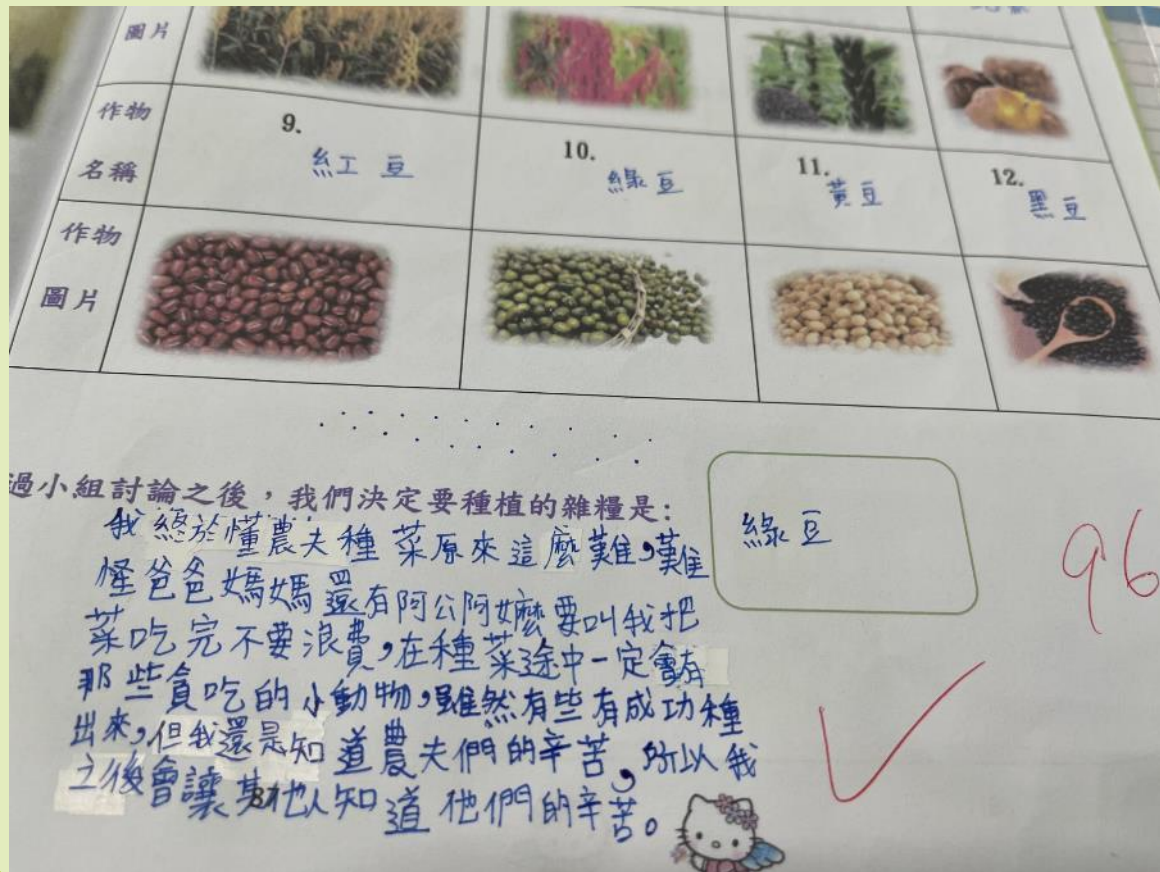 圖片
作物
名稱
9.
紅豆
10.
綠豆
11.
黃豆
12.
黑豆
作物
圖片
過小組討論之後，我們決定要種植的雜糧是：
綠豆
96
我終於懂農夫種菜原來這麼難，難
怪爸爸媽媽還有阿公阿嬤要叫我把
菜吃完不要浪費，在種菜途中一定會有
那些貪吃的小動物，雖然有些有成功種
出來，但我還是知道農夫們的辛苦，所以我
之後會讓其他人知道他們的辛苦。